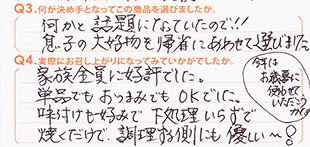 Q3.何が決め手となってこの商品を選びましたか。
何かと話題になっていたので!!
息子の大好物を帰省にあわせて選びました。
Q4.実際にお召し上がりになってみていかがでしたか。
家族全員に好評でした。
単品でもおつまみでもOKでした。
味付けも好みで下処理いらずで
焼くだけで、調理する側にも優しい〜!
今年は
お歳暮に
使わせて
いただこう
カナ